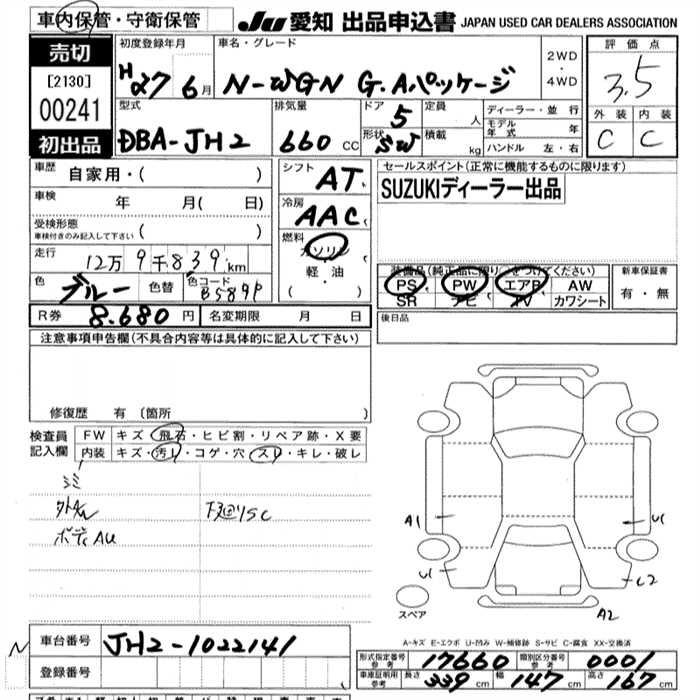 車内保管・守衛保管
JU 愛知 出品申込書 JAPAN USED CAR DEALERS ASSOCIATION
売切
[2130]
00241
初出品
初度登録年月
H27 6月
車名・グレード
N-WGN G.Aパッケージ
2WD
・
4WD
評価点
3.5
外装 内装
C C
型式
DBA-JH2
排気量
660 CC
ドア 5
形状 SW
定員 人
積載 kg
ディーラー・並行
モデル年式 年
ハンドル 左・右
車歴 自家用・( )
車検 年 月( 日)
受検形態
車検付きのみ記入して下さい ( )
走行 12万9千839km
色 ブルー 色替 色コード B589P
シフト AT
冷房 AAC
燃料
ガソリン
軽・油
( ・ )
セールスポイント(正常に機能するものに限ります)
SUZUKIディーラー出品
装備品(純正品に限り○をつけてください)
PS PW エアB AW
SR ナビ TV カワシート
新車保証書
有・無
R券 8.680円 名変期限 月 日
後日品
注意事項申告欄(不具合内容等は具体的に記入して下さい)
修復歴 有 〔箇所 〕
検査員
記入欄
FW キズ・飛石・ヒビ割・リペア跡・X要
内装 キズ・汚れ・コゲ・穴・スレ・キレ・破レ
ミミ
下回りSC
ボディAU
A1
U1
U1
C2
A2
スペア
A-キズ E-エクボ U-凹み W-補修跡 S-サビ C-腐食 XX-交換済
N
車台番号 JH2-1022141
登録番号
形式指定番号
参考 17660
類別区分番号
参考 0001
車庫証明用
参考 長さ 339cm 幅 147cm 高さ 167cm